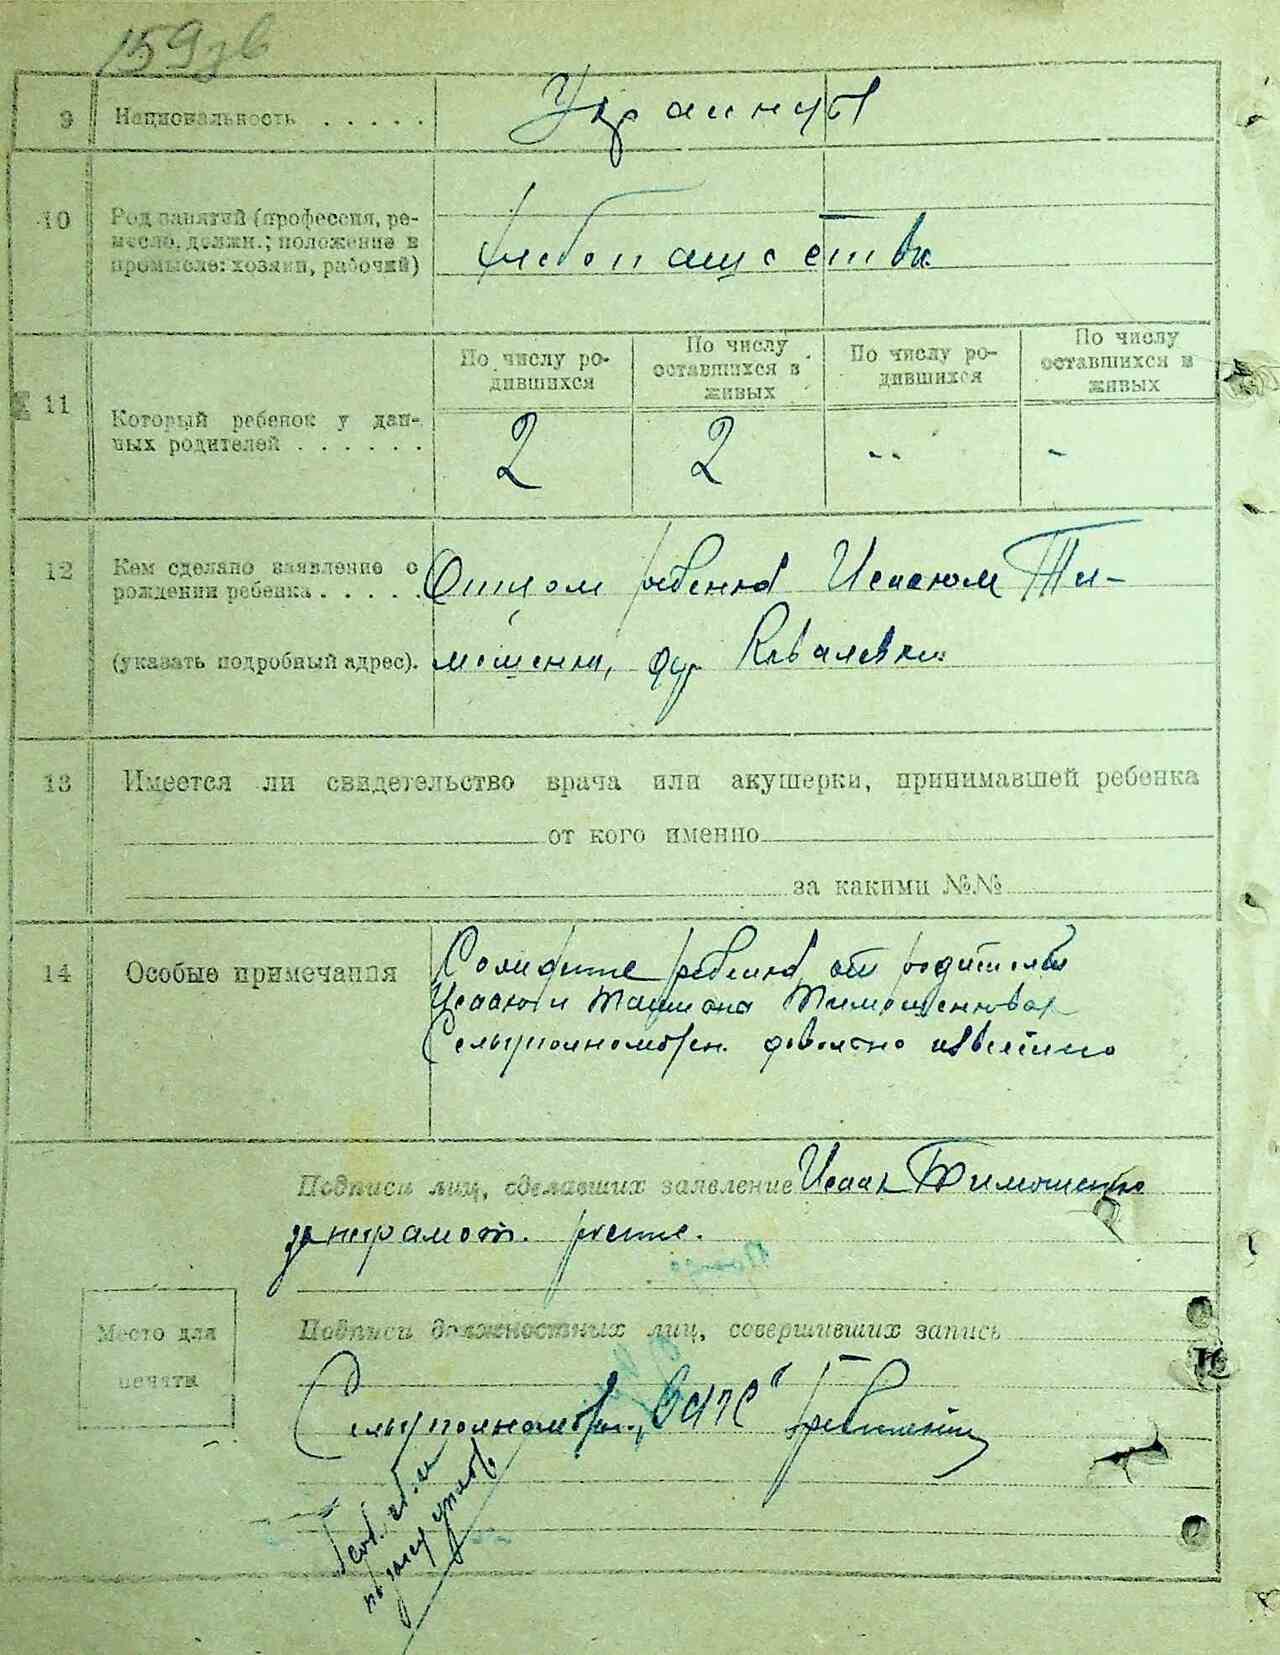 159
9 Национальность . . . . . Украинцы
10 Род занятий (профессия, ре-
месло, должн.; положение в
промысле: хозяин, рабочий)
хлебопашество
11 Который ребенок у дан-
ных родителей . . . . . .
По числу ро-
дившихся
По числу
оставшихся в
живых
По числу ро-
дившихся
По числу
оставшихся в
живых
2 2 - - -
12 Кем сделано заявление о
рождении ребенка . . . . .
(указать подробный адрес).
Отцом ребенка Исааком Ти-
мошенко, дер. Ковалевки
13 Имеется ли свидетельство врача или акушерки, принимавшей ребенка
от кого именно
за какими №№
14 Особые примечания
ребенка от родителей
Исаака и Тимошенковых
Сельуполномочен. известно
Подписи лиц, сделавших заявление Исаак Тимошенко
Подписи должностных лиц, совершивших запись
Место для
печати
Сельуполномоч.